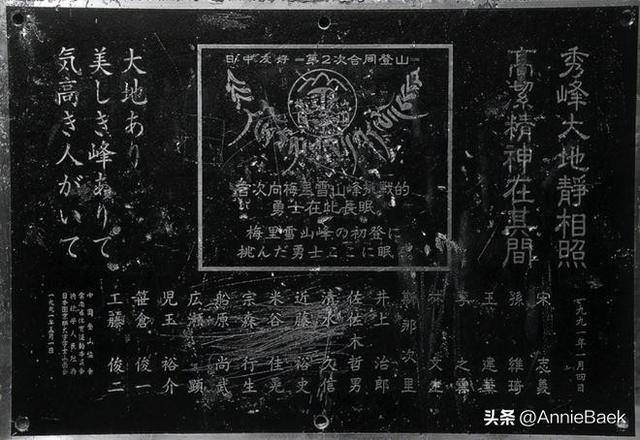 秀峰大地靜相照
高潔精神在其間
日中友好—第2次合同登山
首次向梅里雪山峰挑戰的
勇士在此長眠
梅里雪山峰の初登に
挑んだ勇士ここに眠
大地あり
美しき峰ありて
気高き人がいて
一九九一年一月四日
宋 志義
孫 維琦
王 建華
李 之雲
林 文生
斯那次里
井上 治郎
佐佐木 哲男
清水 久信
近藤 裕史
米谷 佳晃
宗森 行生
船原 尚武
広瀬 顕
児玉 裕介
笹倉 俊一
工藤 俊二
中国登山協会
日本国京都大学学士山岳会
头条 @AnnieBaek